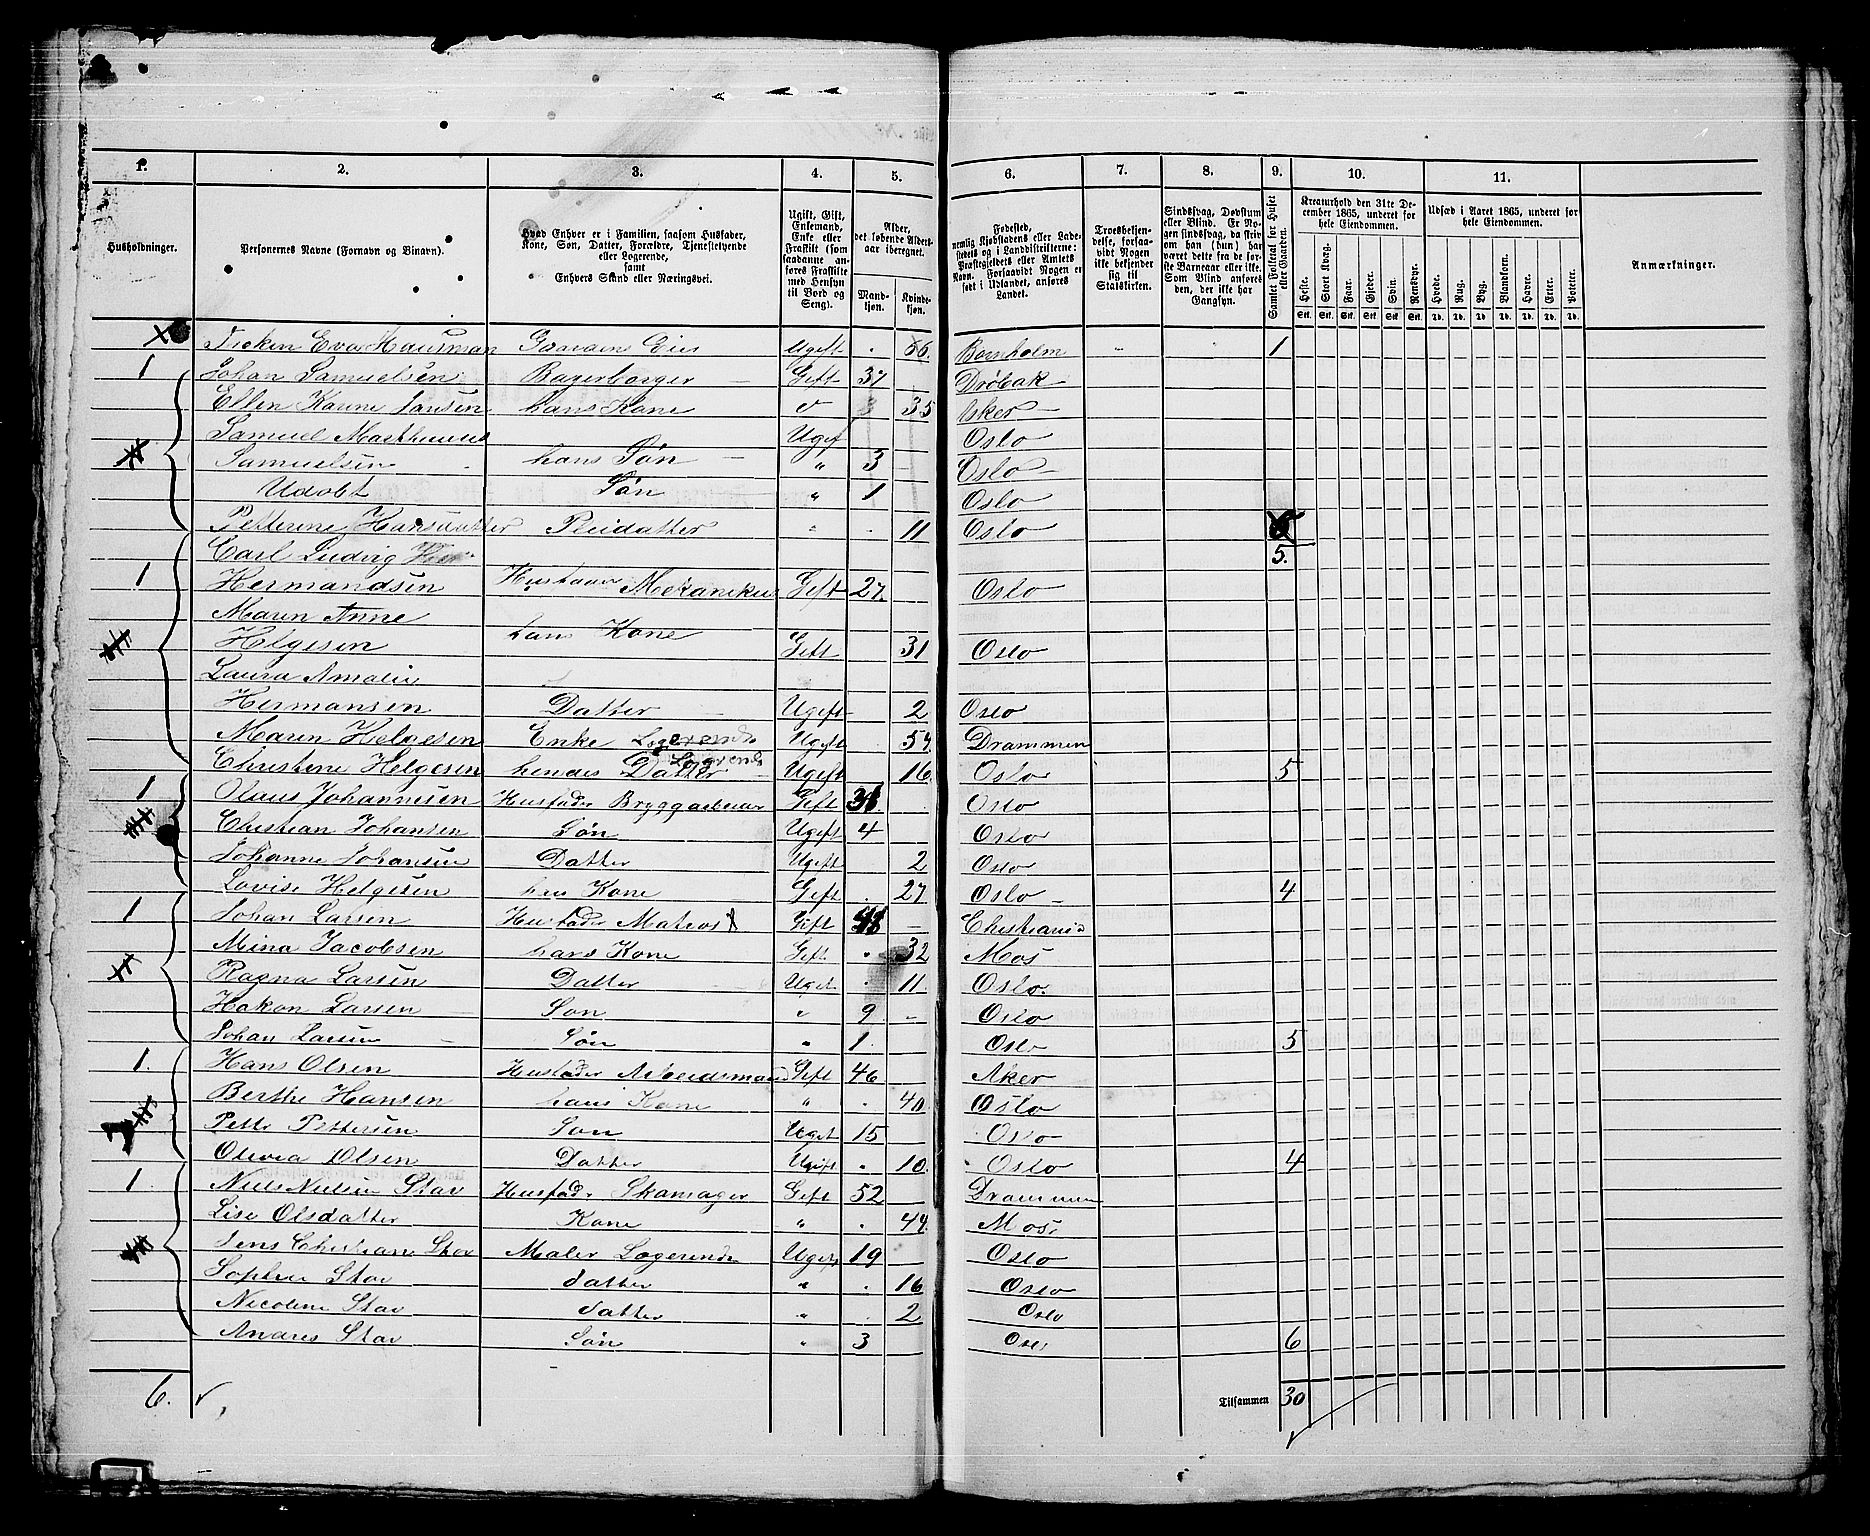 1. 2. 3. 4. 5. 6. 7. 8. 9. 10. 11.
Husholdninger.
Personernes Navne (Fornavn og Binavn).
Hvad Enhver er i Familien, saasom Husfader,
Kone, Søn, Datter, Forældre, Tjenestetyende
eller Logerende,
samt
Enhvers Stand eller Næringsvei.
Ugift, Gift,
Enkemand,
Enke eller
Fraskilt (som
saadanne an-
føres Fraskilte
med Hensyn
til Bord og
Seng).
Alder,
det løbende Alders-
aar iberegnet.
Mand-
kjøn.
Kvinde-
kjøn.
Fødested,
nemlig Kjøbstadens eller Lade-
stedets og i Landdistrikterne:
Præstegjeldets eller Amtets
Navn. Forsaavidt Nogen er
født i Udlandet, anføres
Landet.
Troesbekjen-
delse, forsaa-
vidt Nogen
ikke bekjender
sig til
Statskirken.
Sindssvag, Døvstum
eller Blind. Er No-
gen sindssvag, da skriv
om han (hun) har
været dette fra de før-
ste Barneaar eller ikke.
Som Blind anføres
den, der ikke har
Gangsyn.
Samlet Folketal for Huset
eller Gaarden.
Kreaturhold den 31te De-
cember 1865, underet for
hele Eiendommen.
Heste. Stort Kvæg. Faar. Gjeder. Svin. Rensdyr.
Stk. Stk. Stk. Stk. Stk. Stk.
Udsæd i Aaret 1865, underet for
hele Eiendommen.
Hvede. Rug. Byg. Blandkorn. Havre. Erter. Poteter.
Td. Td. Td. Td. Td. Td. Td.
Anmærkninger.
Eva Hausman Ugift 66. Bornholm 1
1 Johan Samuelsen Gift 37 Drøbak
Ellen Karine Jansen hans Kone 35 Aker
Samuel Matheus Ugif Oslo
Samuelsen hans Søn " 3 Oslo
Udobt Søn " 1 Oslo
Petterine Hansdatter Pleidatter " 11 Oslo
Carl Ludvig 5.
1 Hermandsen Husfader Mekanikus Gift 27. Oslo
Maren Anne
Helgesen hans Kone Gift 31 Oslo
Laura Amalie
Hermansen Datter Ugift 2 Oslo
Maren Helgesen Enke Logerende Ugift 54. Drammen
Christine Helgesen hendes Datter Logerende Ugift 16. Oslo 5
1 Olaus Johannesen Husfader Bryggearbeider Gift Oslo
Christian Johansen Søn Ugift 4 Oslo
Johanne Johansen Datter Ugift 2 Oslo
Lovise Helgesen hans Kone Gift 27 Oslo 4
1 Johan Larsen Husfader Matros Gift Christiania
Mina Jacobsen hans Kone Gift 32 Mos
Ragna Larsen Datter Uget 11. Oslo.
Hakon Larsen Søn " 9 Oslo
Johan Larsen Søn " 1. Oslo 5
1. Hans Olsen Husfader Arbeidsmand Gift 46 Aker
Berthe Hansen hans Kone " 40 Oslo
Petter Pettersen Søn Uget 15 Oslo
Olivia Olsen Datter Ugift 10. Oslo 4
1. Niels Nielsen Stav Husfader Skomager Gift 52 Drammen
Lise Olsdatter Kone " 44. Mos
Jens Christian Stav Maler Logerende Ugift 19 Oslo
Sophie Stav datter " 16 Oslo
Nicoline Stav datter " 2 Oslo
Andres Stav Søn " 3 Oslo 6
6. Tilsammen 30